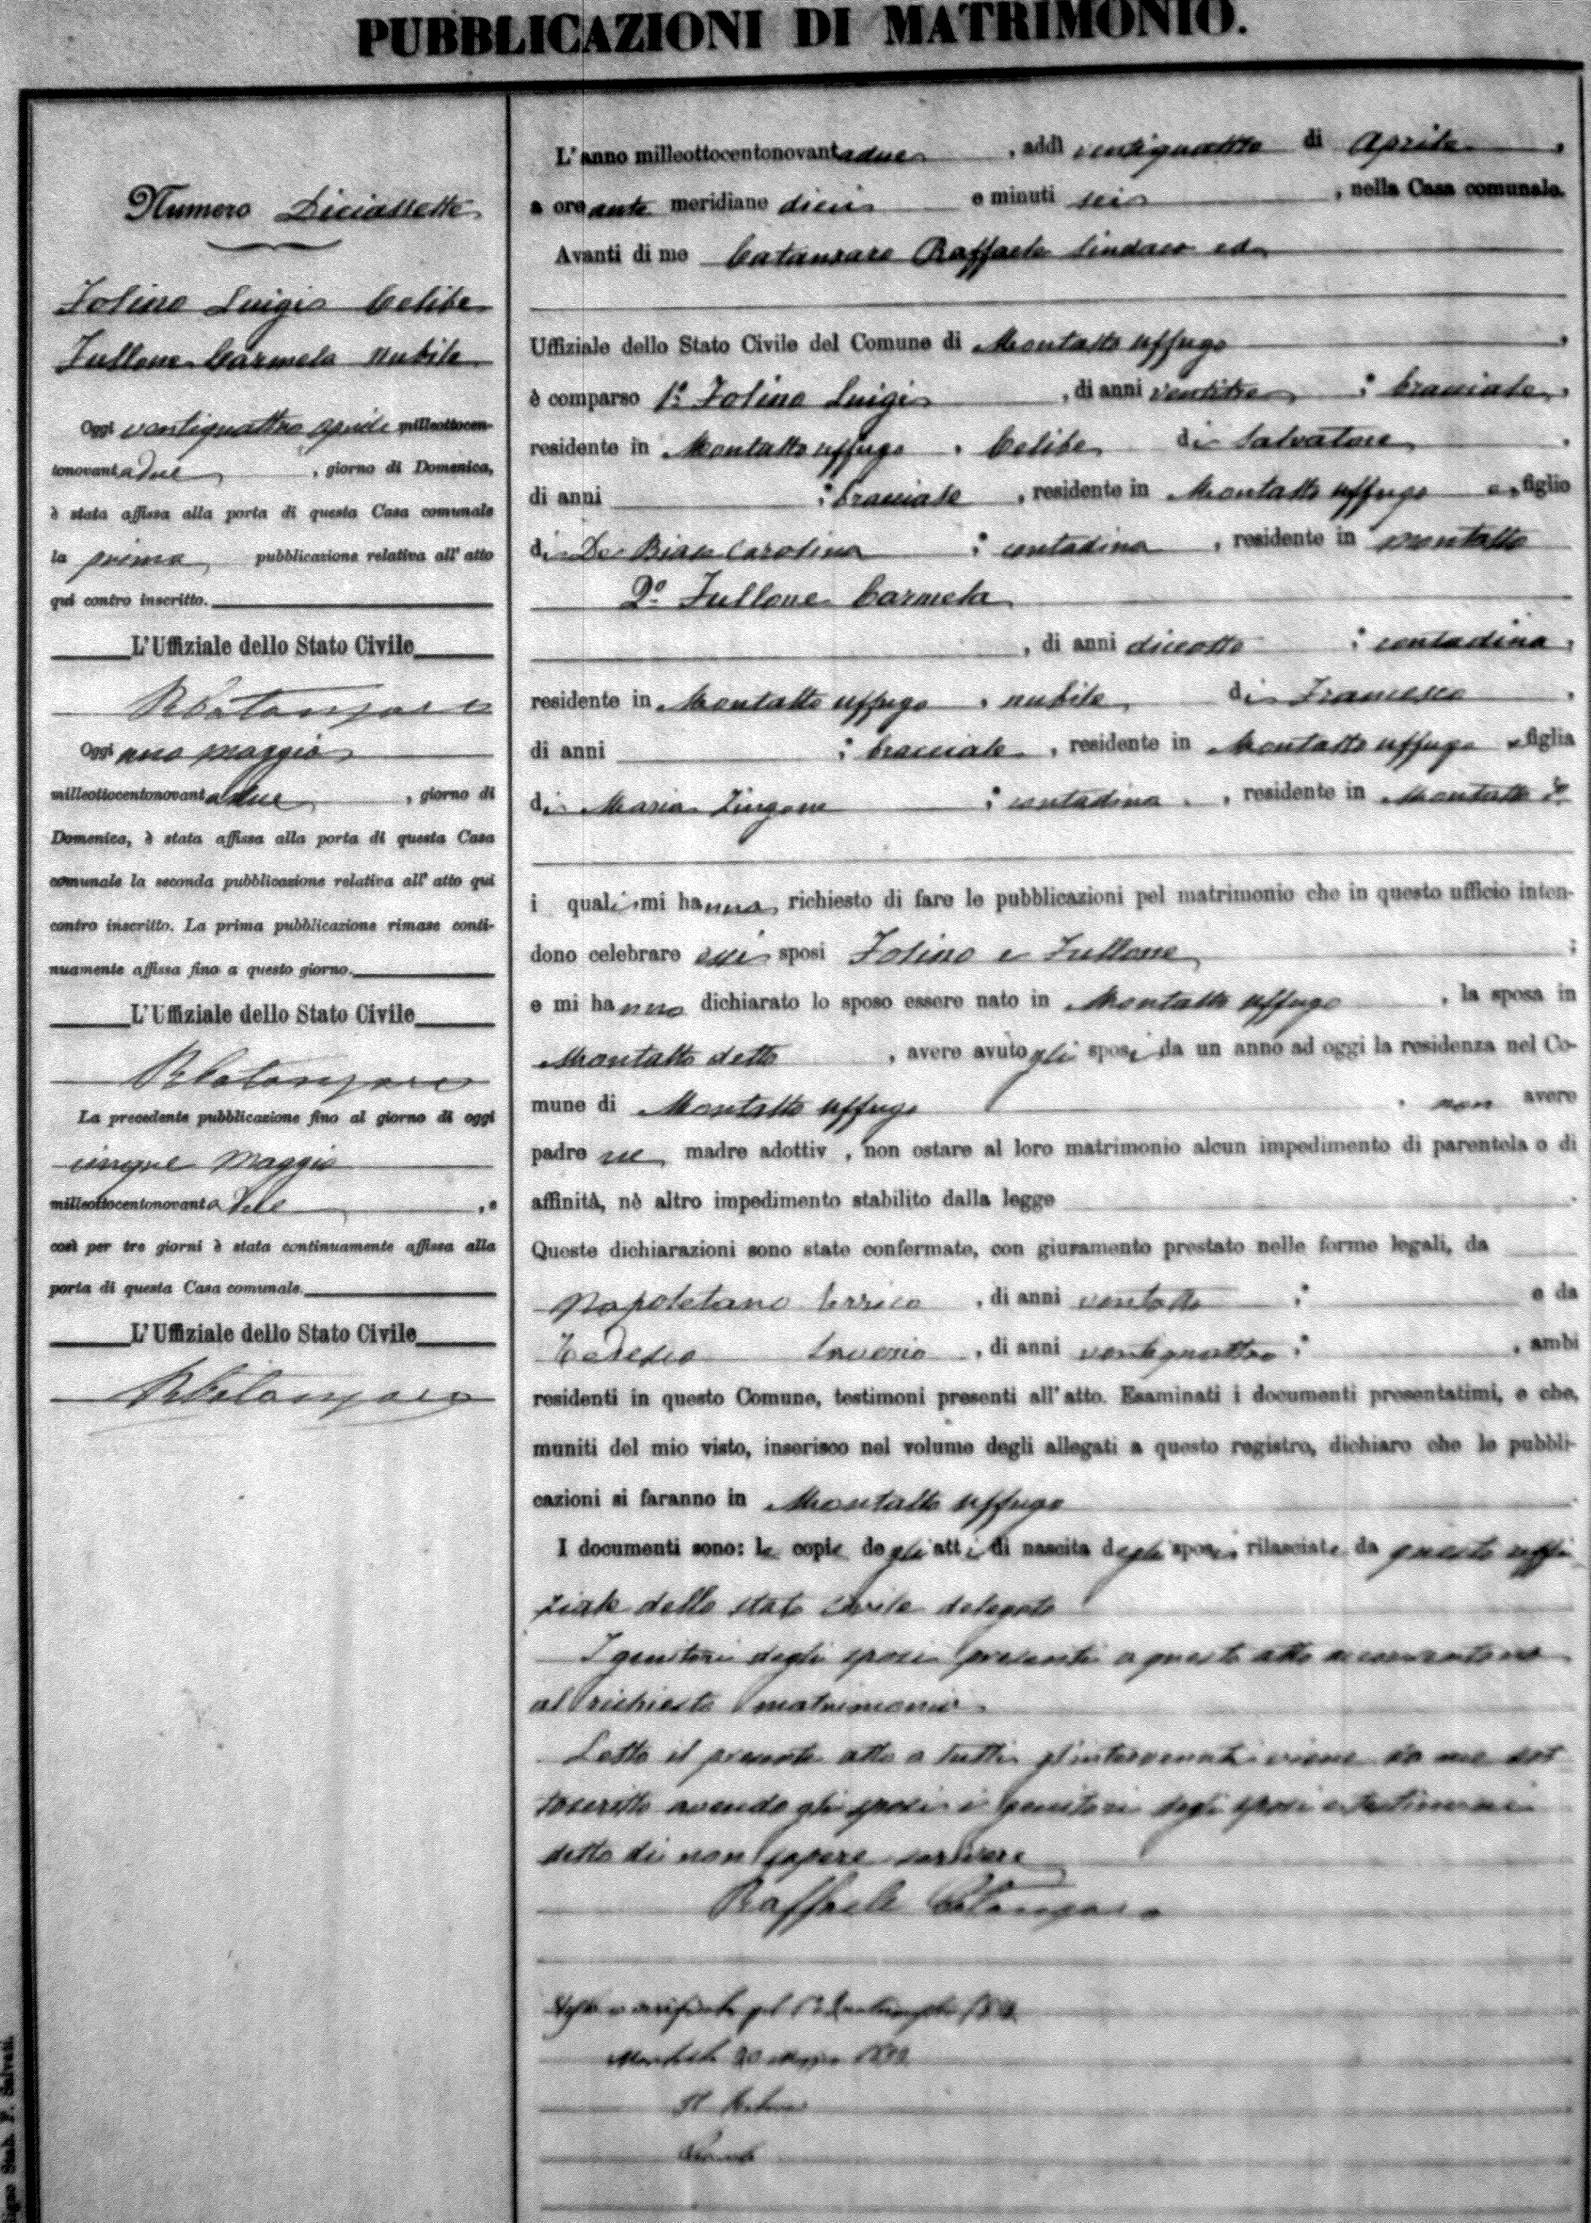 PUBBLICAZIONI DI MATRIMONIO.
Numero Diciassette
Folino Luigi Celibe
Fullone Carmela nubile
Oggi ventiquattro aprile milleottocen-
tonovantadue, giorno di Domenica,
è stata affissa alla porta di questa Casa comunale
la prima pubblicazione relativa all' atto
qui contro inscritto.
L'Uffiziale dello Stato Civile
RCatanzaro
Oggi uno maggio
milleottocentonovantadue, giorno di
Domenica, è stata affissa alla porta di questa Casa
comunale la seconda pubblicazione relativa all' atto qui
contro inscritto. La prima pubblicazione rimase conti-
nuamente affissa fino a questo giorno.
L'Uffiziale dello Stato Civile
RCatanzaro
La precedente pubblicazione fino al giorno di oggi
cinque Maggio
milleottocentonovantadue, e
così per tre giorni è stata continuamente affissa alla
porta di questa Casa comunale.
L'Uffiziale dello Stato Civile
RCatanzaro
L'anno milleottocentonovantadue, addì ventiquattro di Aprile,
a ore ante meridiane dieci e minuti sei, nella Casa comunale.
Avanti di me Catanzaro Raffaele Sindaco ed
Uffiziale dello Stato Civile del Comune di Montalto Uffugo,
è comparso 1° Folino Luigi, di anni ventitre; bracciale,
residente in Montalto Uffugo, Celibe di Salvatore,
di anni ; bracciale, residente in Montalto Uffugo e, figlio
di De Biase Carolina; contadina, residente in Montalto
2° Fullone Carmela
, di anni diciotto; contadina,
residente in Montalto Uffugo, nubile di Francesco,
di anni ; bracciale, residente in Montalto Uffugo e figlia
di Maria Zingone; contadina, residente in Montalto
i quali mi hanno richiesto di fare le pubblicazioni pel matrimonio che in questo ufficio inten-
dono celebrare essi sposi Folino e Fullone;
e mi hanno dichiarato lo sposo essere nato in Montalto Uffugo, la sposa in
Montalto detto, avere avuto gli sposi da un anno ad oggi la residenza nel Co-
mune di Montalto Uffugo, non avere
padre ne madre adottiv , non ostare al loro matrimonio alcun impedimento di parentela o di
affinità, nè altro impedimento stabilito dalla legge.
Queste dichiarazioni sono state confermate, con giuramento prestato nelle forme legali, da
Napoletano Errico, di anni ventotto; e da
Tedesco Saverio, di anni ventiquattro; , ambi
residenti in questo Comune, testimoni presenti all'atto. Esaminati i documenti presentatimi, e che,
muniti del mio visto, inserisco nel volume degli allegati a questo registro, dichiaro che le pubbli-
cazioni si faranno in Montalto Uffugo.
I documenti sono: le copie degli atti di nascita degli sposi rilasciate da questo uffi
ziale dello stato civile delegato
I genitori degli sposi presenti a questo atto acconsentono
al richiesto matrimonio
Letto il presente atto a tutti gl'intervenuti viene da me sot
toscritto avendo gli sposi i genitori degli sposi e testimoni
detto di non sapere scrivere
Raffaele Catanzaro
1892
20 Maggio 1892
Il
Foligno Stab. F. Salvati.